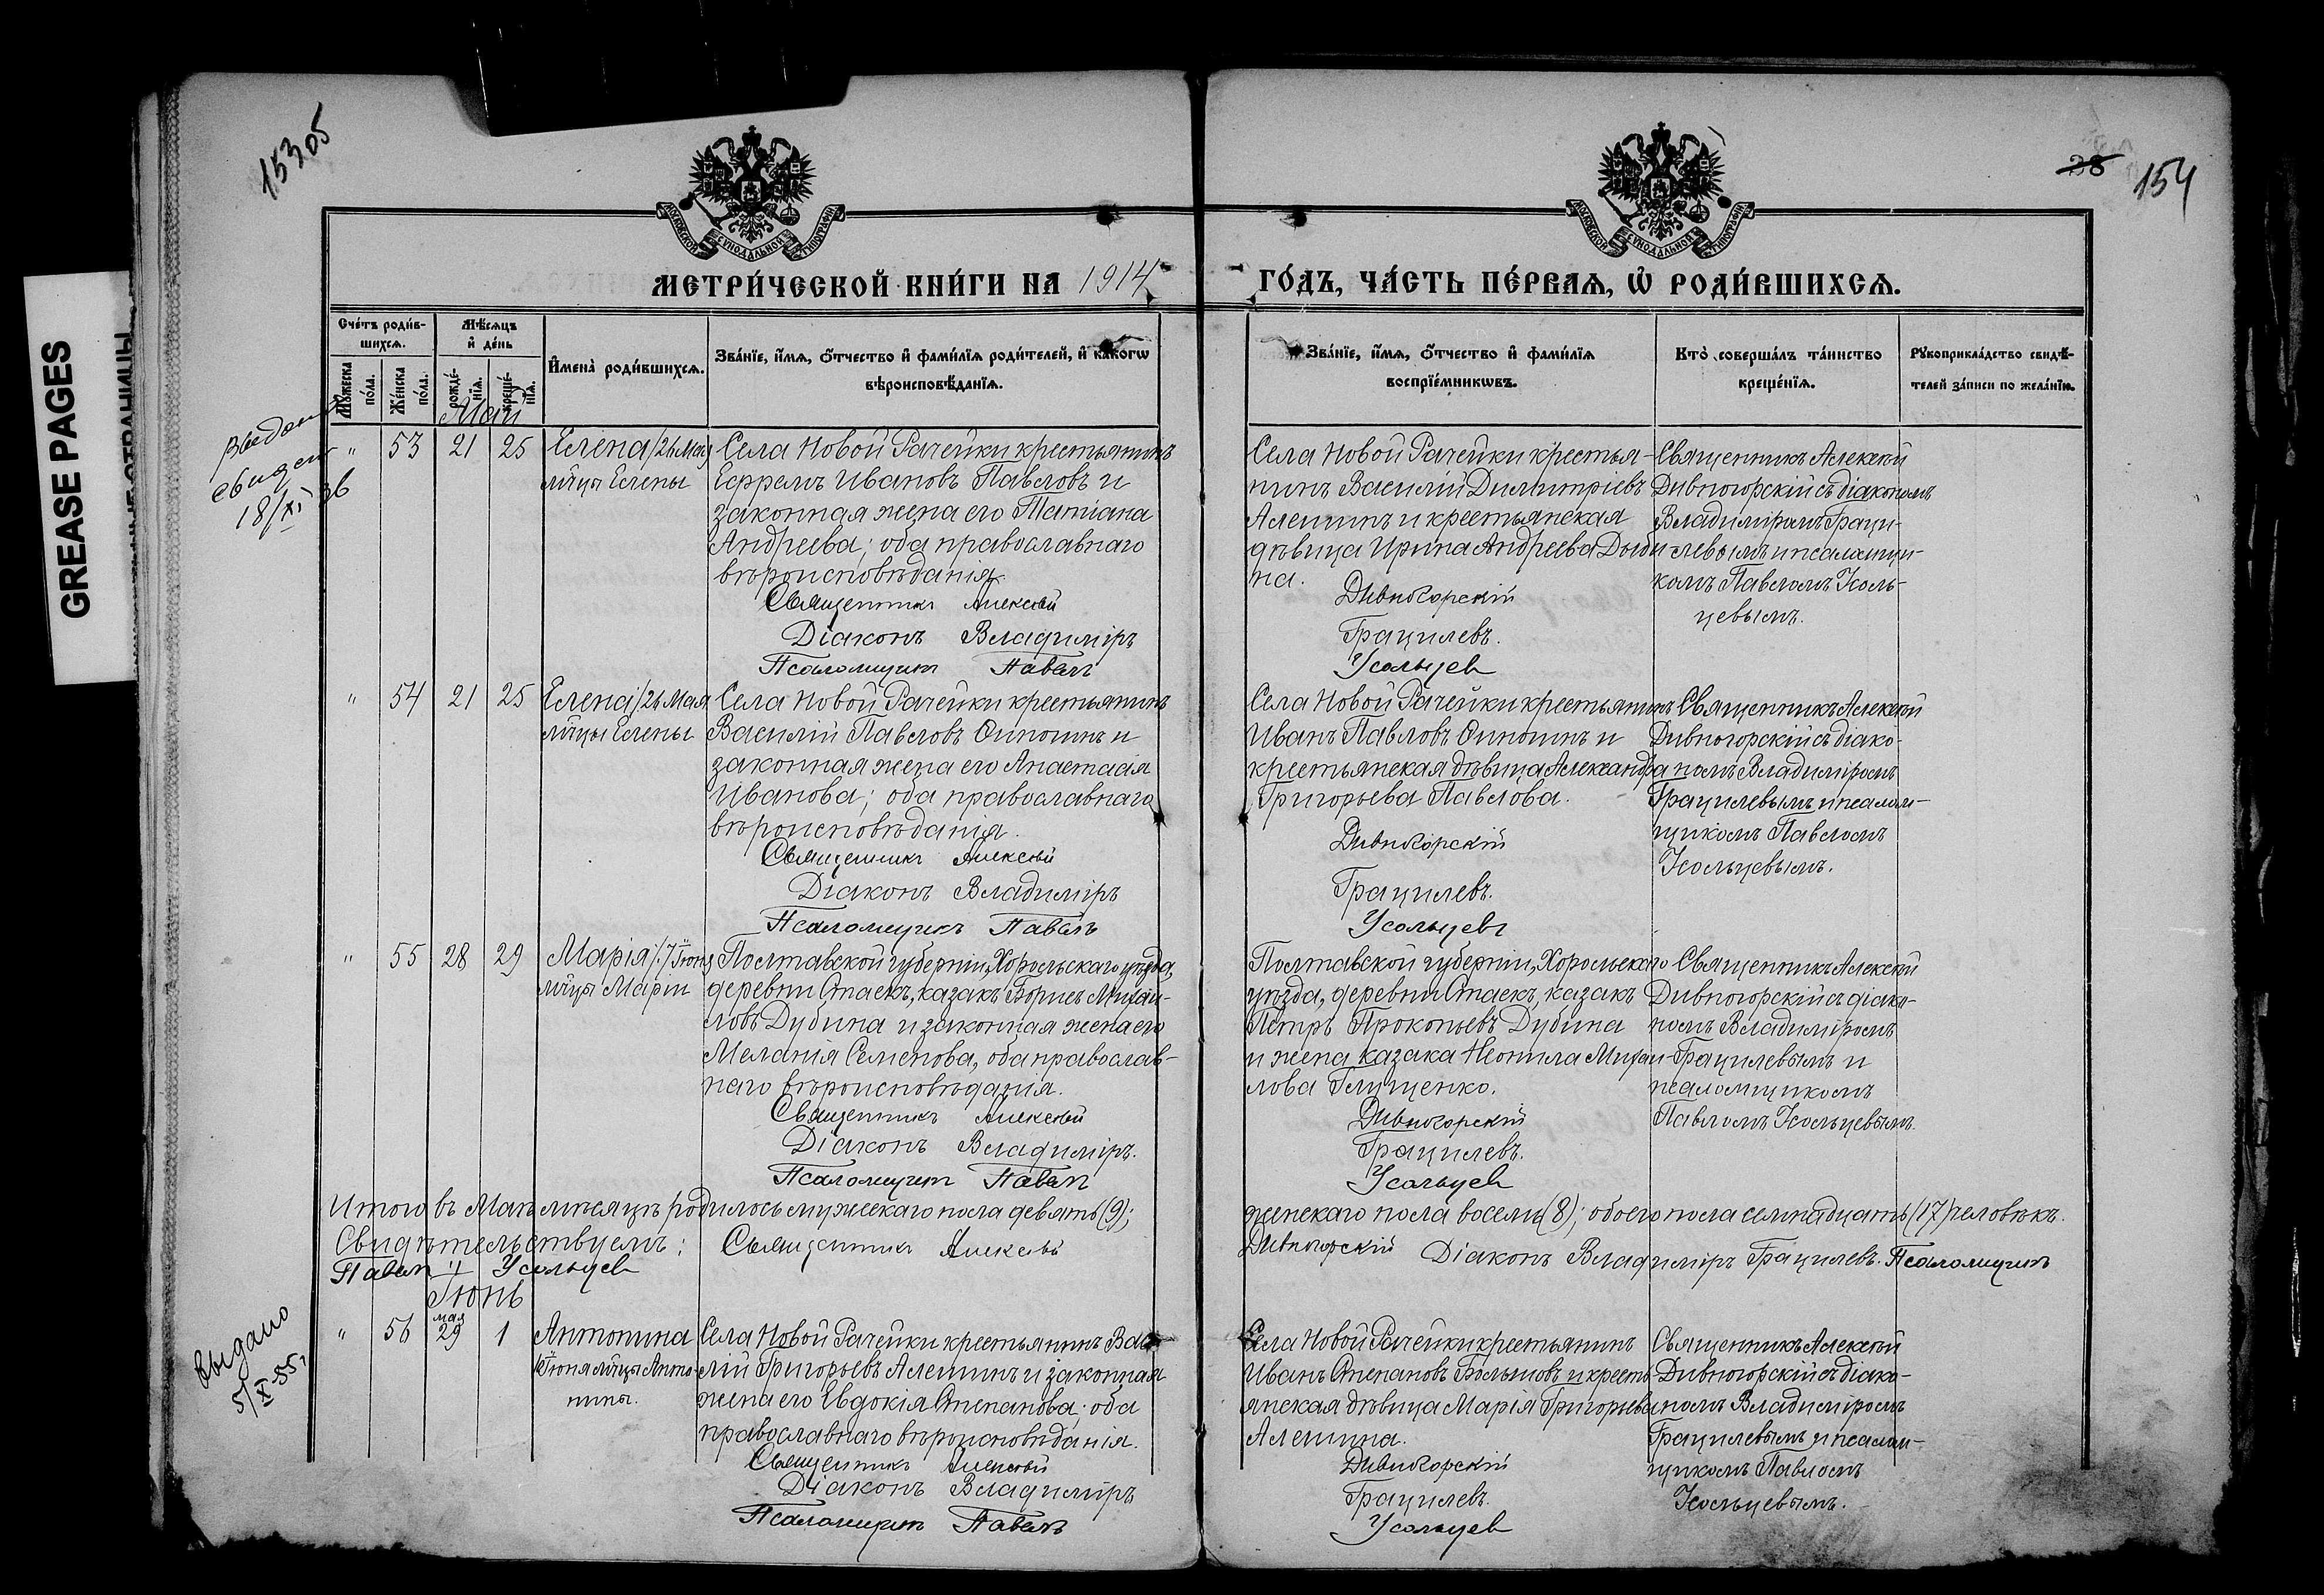 15305
38 154
GREASE PAGES
МОСКОВСКОЙ СѴНОДАЛЬНОЙ ТИПОГРАФІИ
МОСКОВСКОЙ СѴНОДАЛЬНОЙ ТИПОГРАФІИ
МЕТРИ́ЧЕСКОЙ КНИ́ГИ НА 1914 ГО́ДЪ, ЧА́СТЬ ПЕ́РВАѦ, Ѡ҆ РОДИ́ВШИХСѦ.
Сче́тъ роди́в-
шихсѧ.
Мѣ́сѧцъ
и҆ де́нь
Мꙋ́жеска по́ла.
Же́нска по́ла.
рожде́-
нїѧ.
креще́-
нїѧ.
И҆мена̀ роди́вшихсѧ.
Зва́нїе, и҆́мѧ, ѻ҆́тчество и҆ фами́лїѧ роди́телей, и҆ како́гѡ
вѣроисповѣ́данїѧ.
Зва́нїе, и҆́мѧ, ѻ҆́тчество и҆ фами́лїѧ
воспрїе́мникѡвъ.
Кто̀ соверша́лъ та́инство
креще́нїѧ.
Рꙋкоприкла́дство свидѣ́-
телей за́писи по жела́нїю.
Май
" 53 21 25
Елена /26 Мая
м͠цы Елены
Села Новой Рачейки крестьянинъ
Ефремъ Ивановъ Павловъ и
законная жена его Татіана
Андреева; оба православнаго
вѣроисповѣданія.
Священникъ Алексѣй
Діаконъ Владиміръ
Псаломщикъ Павелъ
Села Новой Рачейки крестья-
нинъ Василій Димитріевъ
Алешинъ и крестьянская
дѣвица Ирина Андреева
на.
Дивногорскій
Грацилевъ.
Усольцевъ
Священникъ Алексѣй
Дивногорскій съ діакономъ
Владиміромъ Граци-
левымъ и псаломщи-
комъ Павломъ Усоль-
цевымъ.
" 54 21 25
Елена /26 Мая
м͠цы Елены
Села Новой Рачейки крестьянинъ
Василій Павловъ и
законная жена его Анастасія
Иванова; оба православнаго
вѣроисповѣданія.
Священникъ Алексѣй
Діаконъ Владиміръ
Псаломщикъ Павелъ
Села Новой Рачейки крестьянинъ
Иванъ Павловъ и
крестьянская дѣвица Александра
Григорьева Павлова.
Дивногорскій
Грацилевъ.
Усольцевъ
Священникъ Алексѣй
Дивногорскій съ діако-
номъ Владиміромъ
Грацилевымъ и псалом-
щикомъ Павломъ
Усольцевымъ.
" 55 28 29
Марія /7 Іюня
м͠цы Маріи
Полтавской губерніи, Хорольскаго уѣзда,
деревни Стаекъ, казакъ Борисъ Михаи-
ловъ Дубина и законная жена его
Меланія Семенова, оба православ-
наго вѣроисповѣданія.
Священникъ Алексѣй
Діаконъ Владиміръ.
Псаломщикъ Павелъ
Полтавской губерніи, Хорольскаго
уѣзда, деревни Стаекъ, казакъ
Петръ Прокопьевъ Дубина
и жена казака Неонила Михаи-
лова Глущенко.
Дивногорскій
Грацилевъ.
Усольцевъ
Священникъ Алексѣй
Дивногорскій съ діако-
номъ Владиміромъ
Грацилевымъ и
псаломщикомъ
Павломъ Усольцевымъ.
Итого въ Маѣ мѣсяцѣ родилось мужескаго пола девять (9); женскаго пола восемь (8); обоего пола семнадцать (17) человѣкъ.
Свидѣтельствуемъ: Священникъ Алексѣй Дивногорскій Діаконъ Владиміръ Грацилевъ. Псаломщикъ
Павелъ Усольцевъ
Іюнь
" 56 мая 29 1
Антонина
Іюня м͠цы Анто-
нины.
Села Новой Рачейки крестьянинъ Васи-
лій Григорьевъ Алешинъ и законная
жена его Евдокія Степанова; оба
православнаго вѣроисповѣданія.
Священникъ Алексѣй
Діаконъ Владиміръ
Псаломщикъ Павелъ
Села Новой Рачейки крестьянинъ
Иванъ Степановъ Большовъ и кресть-
янская дѣвица Марія Григорьева
Алешина.
Дивногорскій
Грацилевъ.
Усольцевъ
Священникъ Алексѣй
Дивногорскій съ діако-
номъ Владиміромъ
Грацилевымъ и псалом-
щикомъ Павломъ
Усольцевымъ.
Выдано
5/X-55